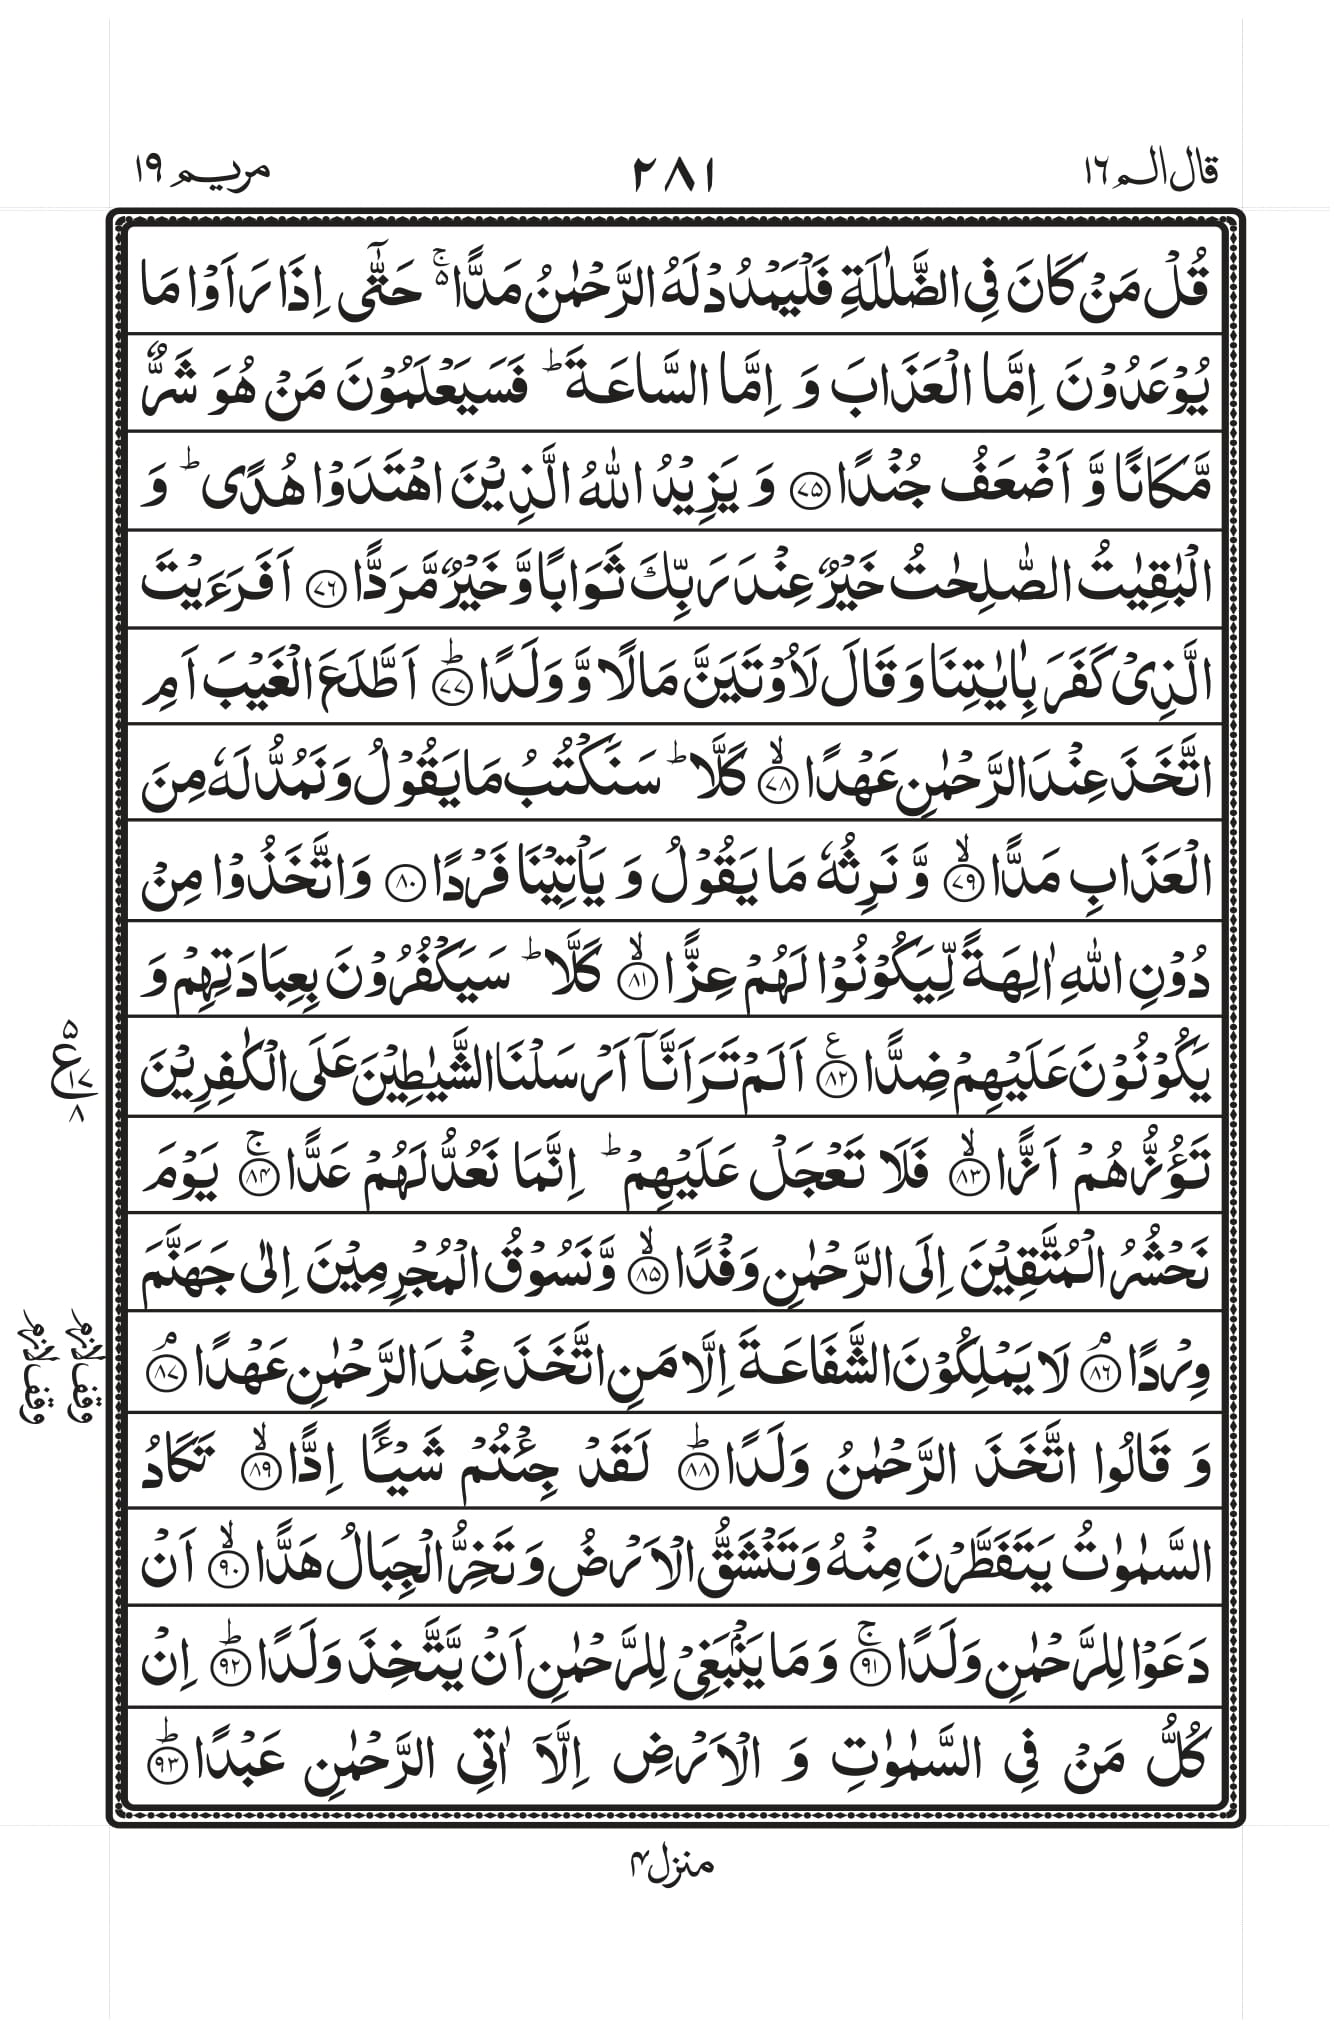 قال الم ١٦
٢٨١
مريم ١٩
قُلۡ مَنۡ كَانَ فِى الضَّلٰلَةِ فَلۡيَمۡدُدۡ لَهُ الرَّحۡمٰنُ مَدًّا ۵ۚ حَتّٰٓى اِذَا رَاَوۡا مَا
يُوۡعَدُوۡنَ اِمَّا الۡعَذَابَ وَ اِمَّا السَّاعَةَ ؕ فَسَيَعۡلَمُوۡنَ مَنۡ هُوَ شَرٌّ
مَّكَانًا وَّ اَضۡعَفُ جُنۡدًا ﴿۷۵﴾ وَ يَزِيۡدُ اللّٰهُ الَّذِيۡنَ اهۡتَدَوۡا هُدًى ؕ وَ
الۡبٰقِيٰتُ الصّٰلِحٰتُ خَيۡرٌ عِنۡدَ رَبِّكَ ثَوَابًا وَّ خَيۡرٌ مَّرَدًّا ﴿۷۶﴾ اَفَرَءَيۡتَ
الَّذِىۡ كَفَرَ بِاٰيٰتِنَا وَ قَالَ لَاُوۡتَيَنَّ مَالًا وَّ وَلَدًا ؕ﴿۷۷﴾ اَطَّلَعَ الۡغَيۡبَ اَمِ
اتَّخَذَ عِنۡدَ الرَّحۡمٰنِ عَهۡدًا ۙ﴿۷۸﴾ كَلَّا ؕ سَنَكۡتُبُ مَا يَقُوۡلُ وَ نَمُدُّ لَهٗ مِنَ
الۡعَذَابِ مَدًّا ۙ﴿۷۹﴾ وَّ نَرِثُهٗ مَا يَقُوۡلُ وَ يَاۡتِيۡنَا فَرۡدًا ﴿۸۰﴾ وَ اتَّخَذُوۡا مِنۡ
دُوۡنِ اللّٰهِ اٰلِهَةً لِّيَكُوۡنُوۡا لَهُمۡ عِزًّا ۙ﴿۸۱﴾ كَلَّا ؕ سَيَكۡفُرُوۡنَ بِعِبَادَتِهِمۡ وَ
يَكُوۡنُوۡنَ عَلَيۡهِمۡ ضِدًّا ﴿۸۲﴾ع اَلَمۡ تَرَ اَنَّاۤ اَرۡسَلۡنَا الشَّيٰطِيۡنَ عَلَى الۡكٰفِرِيۡنَ
۵
ع
۱۷
۸
تَؤُزُّهُمۡ اَزًّا ۙ﴿۸۳﴾ فَلَا تَعۡجَلۡ عَلَيۡهِمۡ ؕ اِنَّمَا نَعُدُّ لَهُمۡ عَدًّا ۚ﴿۸۴﴾ يَوۡمَ
نَحۡشُرُ الۡمُتَّقِيۡنَ اِلَى الرَّحۡمٰنِ وَفۡدًا ۙ﴿۸۵﴾ وَّ نَسُوۡقُ الۡمُجۡرِمِيۡنَ اِلٰى جَهَنَّمَ
وِرۡدًا ۘ﴿۸۶﴾ لَا يَمۡلِكُوۡنَ الشَّفَاعَةَ اِلَّا مَنِ اتَّخَذَ عِنۡدَ الرَّحۡمٰنِ عَهۡدًا ۘ﴿۸۷﴾
وقف لازم
وقف لازم
وَ قَالُوا اتَّخَذَ الرَّحۡمٰنُ وَلَدًا ؕ﴿۸۸﴾ لَقَدۡ جِئۡتُمۡ شَيۡـًٔا اِدًّا ۙ﴿۸۹﴾ تَكَادُ
السَّمٰوٰتُ يَتَفَطَّرۡنَ مِنۡهُ وَ تَنۡشَقُّ الۡاَرۡضُ وَ تَخِرُّ الۡجِبَالُ هَدًّا ۙ﴿۹۰﴾ اَنۡ
دَعَوۡا لِلرَّحۡمٰنِ وَلَدًا ۚ﴿۹۱﴾ وَ مَا يَنۡۢبَغِىۡ لِلرَّحۡمٰنِ اَنۡ يَّتَّخِذَ وَلَدًا ؕ﴿۹۲﴾ اِنۡ
كُلُّ مَنۡ فِى السَّمٰوٰتِ وَ الۡاَرۡضِ اِلَّاۤ اٰتِى الرَّحۡمٰنِ عَبۡدًا ؕ﴿۹۳﴾
منزل ۴